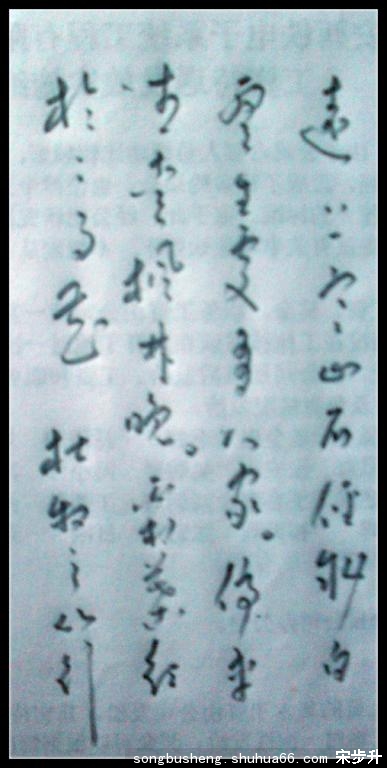 遠上寒山石径斜白
雲生處有人家。停車
坐愛楓林晚。霜葉紅
於二月花 杜牧之山行
songbusheng.shuhua66.com 宋步升